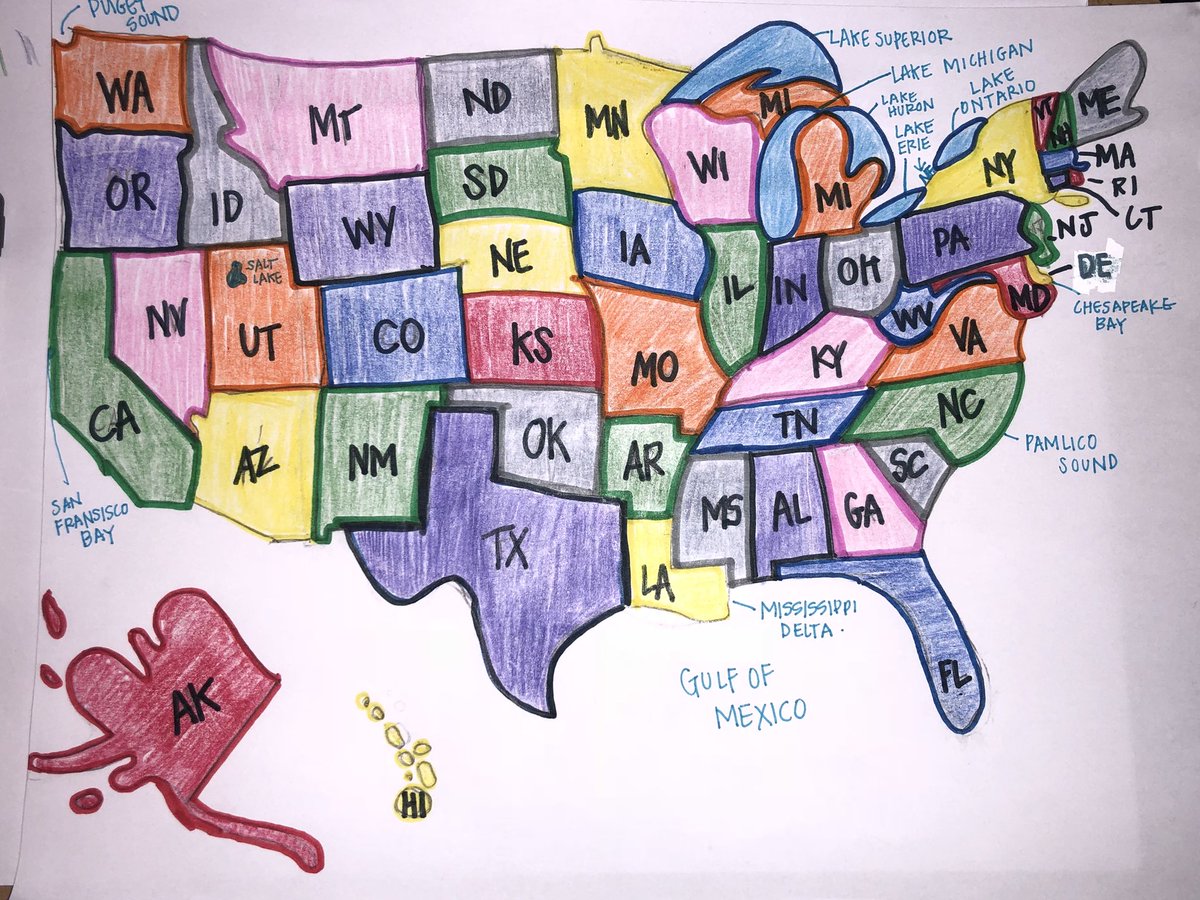 PUGET
SOUND
LAKE SUPERIOR
LAKE MICHIGAN
LAKE
HURON
LAKE
ONTARIO
LAKE
ERIE
WA
MT
ND
MN
MI
VT
NH
ME
OR
ID
SD
WI
MI
NY
MA
RI
CT
WY
NE
IA
IL
IN
OH
PA
NJ
DE
MD
CHESAPEAKE
BAY
SALT
LAKE
NV
UT
CO
KS
MO
KY
WV
VA
CA
AZ
NM
OK
AR
TN
NC
PAMLICO
SOUND
SAN
FRANSISCO
BAY
TX
LA
MS
AL
GA
SC
MISSISSIPPI
DELTA.
FL
GULF OF
MEXICO
AK
HI